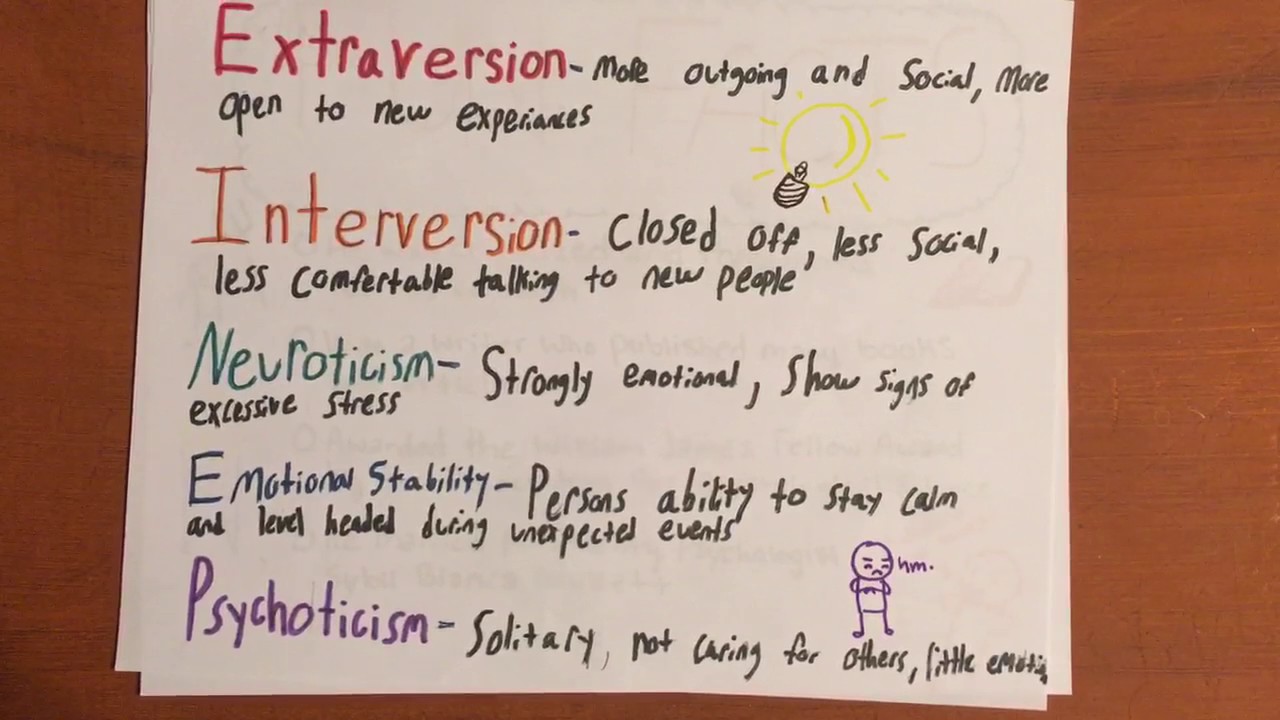 Extraversion- More outgoing and Social, More
open to new experiances
Interversion- Closed off, less social,
less comfortable talking to new people
Neuroticism- Strongly emotional, Show signs of
excessive stress
Emotional Stability- Persons ability to stay calm
and level headed during unexpected events
hm.
Psychoticism- Solitary, not caring for others, little